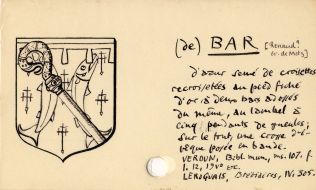 (de) BAR [Renaud,
év. de Metz]
d'azur semé de croisettes
recroisettées au pied fiché
d'or à deux bars adossés
du même, au lambel à
cinq pendants de gueules;
sur le tout, une crosse d'é-
vêque posée en bande.
VERDUN, Bibl. mun., ms. 107, f.
1, 12,
LEROQUAIS, Bréviaires, IV, 305.